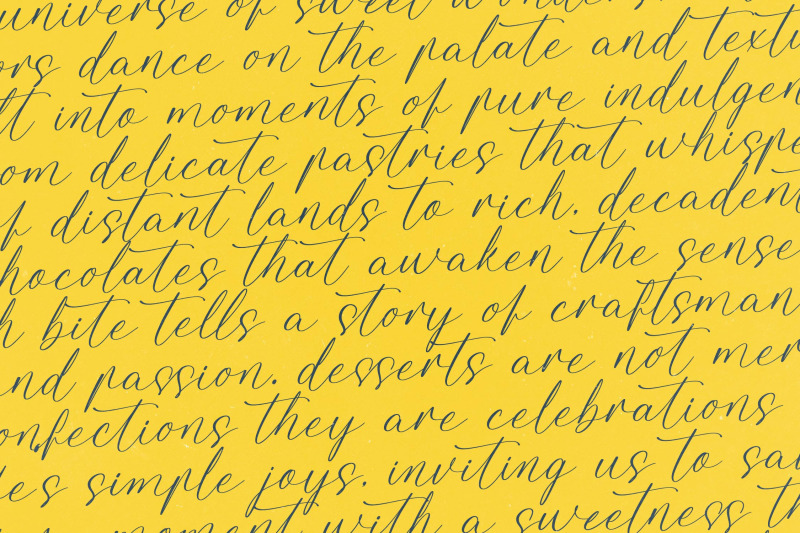 universe of sweet wonders
ors dance on the palate and textu
lt into moments of pure indulgen
om delicate pastries that whispe
f distant lands to rich. decadent
hocolates that awaken the sense
h bite tells a story of craftsman
nd passion. desserts are not mer
onfections they are celebrations
les simple joys. inviting us to sa
moment with a sweetness th